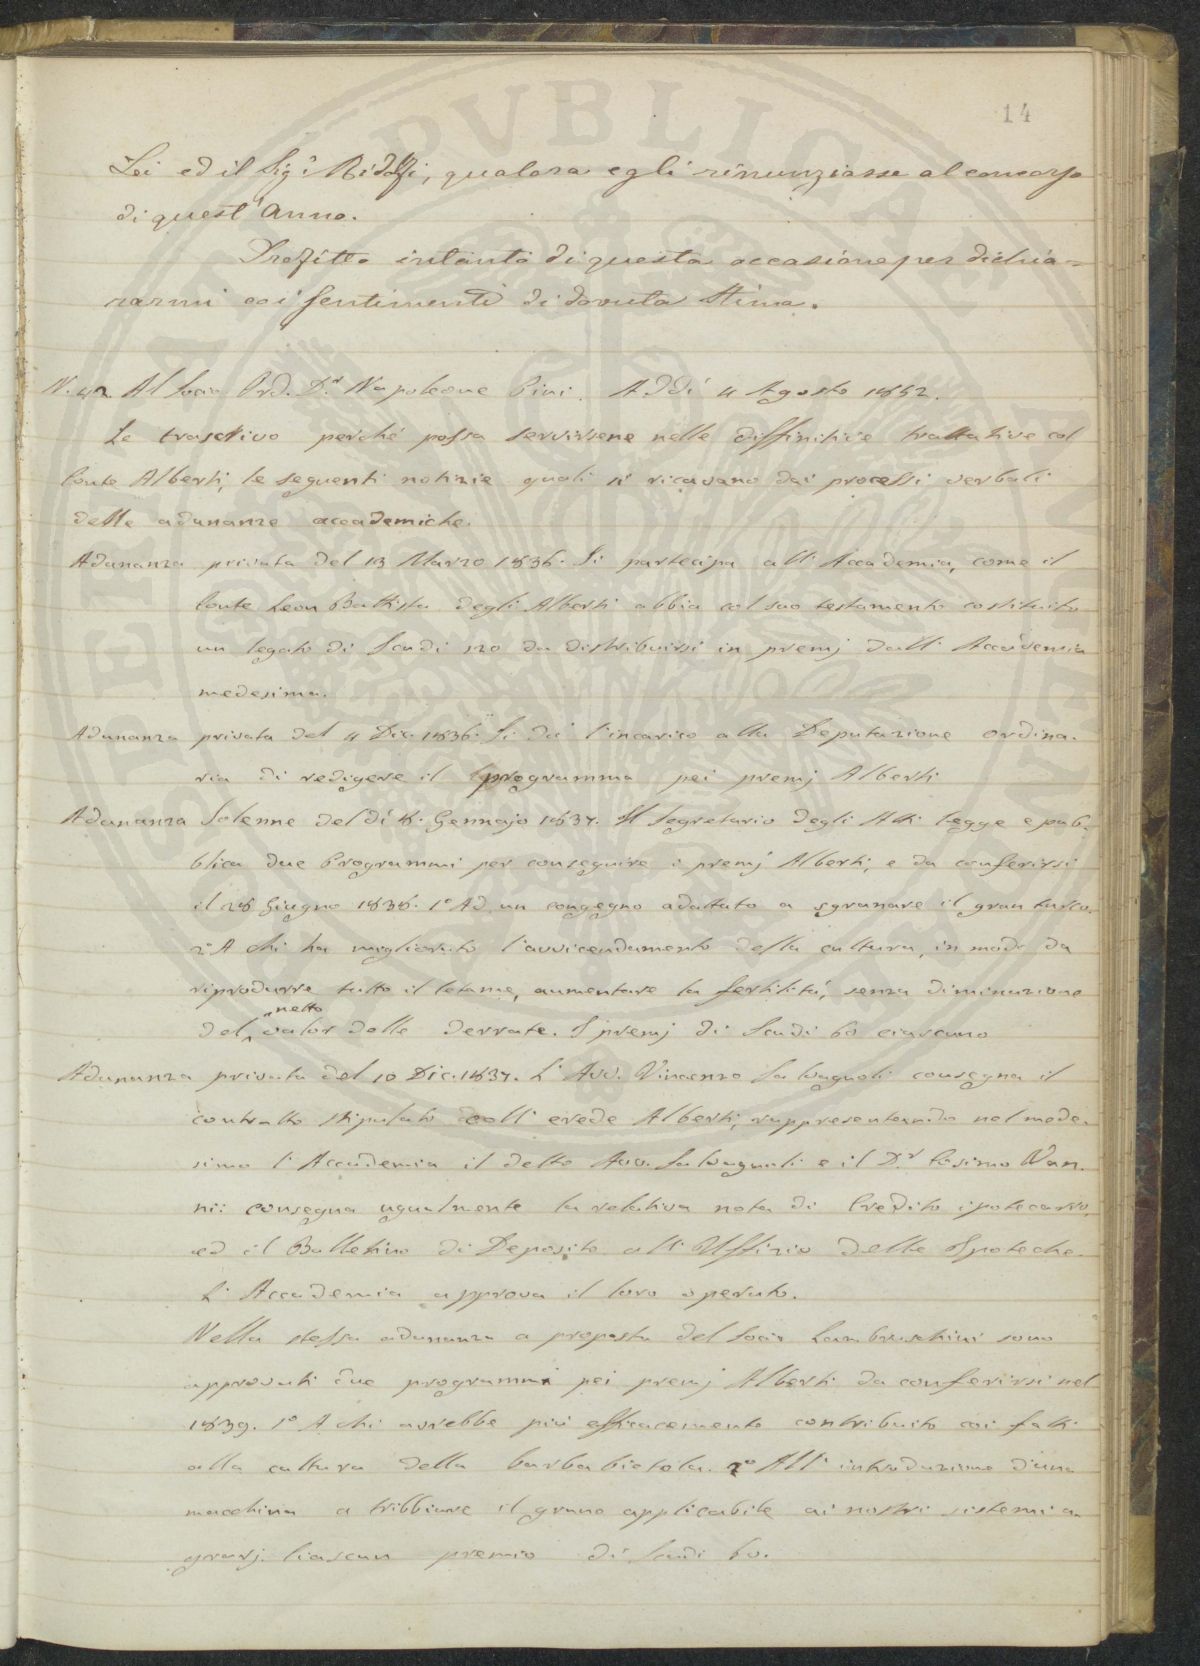 14
Lei ed il Sig.r Ridolfi, qualora egli rinunziasse al concorso
di quest'Anno.
Profitto intanto di questa occasione per dichia=
rarmi coi sentimenti di dovuta Stima.
N. 42. Al Socio Ord. D.r Napoleone Pini. Addì 4 Agosto 1852.
Le trascrivo perché possa servirsene nelle diffinitive trattative col
Conte Alberti, le seguenti notizie quali si ricavano dai processi verbali
delle adunanze accademiche.
Adunanza privata del 13 Marzo 1836. Si partecipa all'Accademia, come il
Conte Leon Battista degli Alberti abbia col suo testamento costituito
un legato di Scudi 120 da distribuirsi in premj dall'Accademia
medesima.
Adunanza privata del 4 Dic. 1836. Si dà l'incarico alla Deputazione ordina-
ria di redigere il programma pei premj Alberti
Adunanza Solenne del dì 8. Gennajo 1837. Il Segretario degli Atti legge e pub-
blica due Programmi per conseguire i premj Alberti, e da conferirsi
il 28 Giugno 1838. 1º Ad un congegno adattato a sgranare il gran turco.
2º A chi ha migliorato l'avvicendamento della cultura, in modo da
riprodurre tutto il letame, aumentare la fertilità, senza diminuzione
del netto valor delle derrate. I premj di Scudi 60 ciascuno
Adunanza privata del 10 Dic. 1837. L'Avv. Vincenzo Salvagnoli consegna il
contratto stipulato coll'erede Alberti, rappresentando nel mede-
simo l'Accademia il detto Avv. Salvagnoli e il D.r Cosimo Van-
ni: consegna ugualmente la relativa nota di Credito ipotecario,
ed il Bullettino di Deposito all'Uffizio delle Ipoteche.
L'Accademia approva il loro operato.
Nella stessa adunanza a proposta del Socio Lambruschini sono
approvati due programmi pei premj Alberti da conferirsi nel
1839. 1º A chi avrebbe più efficacemente contribuito coi fatti
alla cultura della barbabietola. 2º All'introduzione d'una
macchina a tribbiare il grano applicabile ai nostri sistemi a-
grarj. Ciascun premio di Scudi 60.